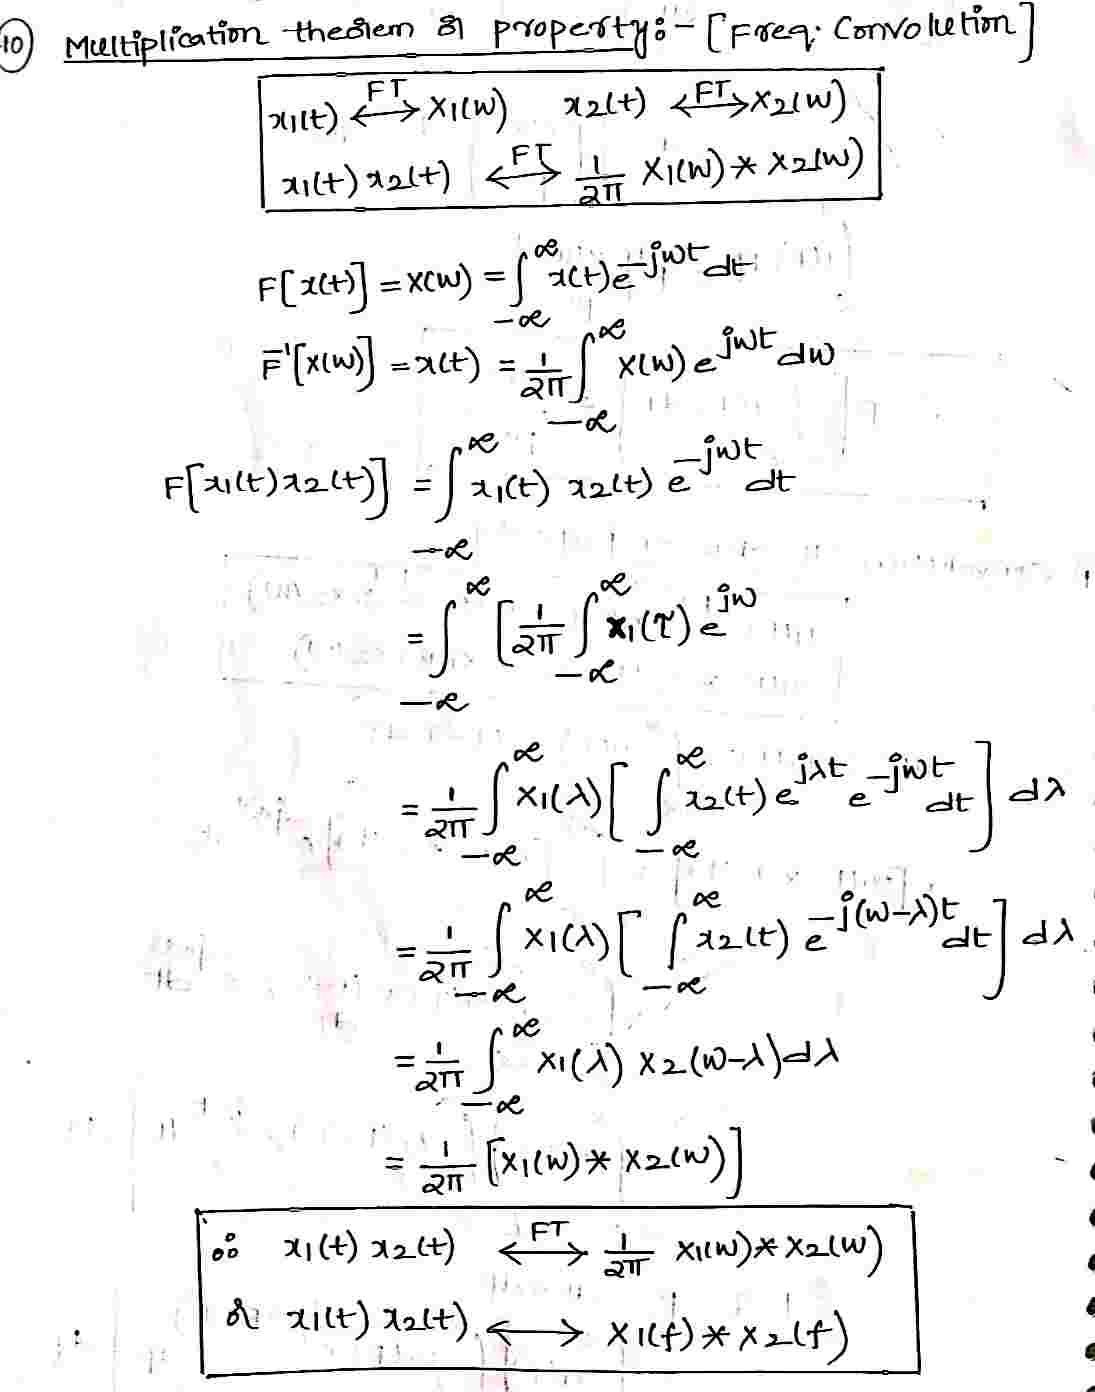 10) Multiplication theorem or property:- [Freq. Convolution]
x1(t) <-FT-> X1(w) x2(t) <-FT-> X2(w)
x1(t) x2(t) <-FT-> 1/2π X1(w) * X2(w)
F[x(t)] = X(w) = ∫_{-∞}^{∞} x(t) e^{-jwt} dt
F^{-1}[X(w)] = x(t) = 1/2π ∫_{-∞}^{∞} X(w) e^{jwt} dw
F[x1(t) x2(t)] = ∫_{-∞}^{∞} x1(t) x2(t) e^{-jwt} dt
= ∫_{-∞}^{∞} [1/2π ∫_{-∞}^{∞} x1(τ) e^{jw}
= 1/2π ∫_{-∞}^{∞} X1(λ) [ ∫_{-∞}^{∞} x2(t) e^{jλt} e^{-jwt} dt ] dλ
= 1/2π ∫_{-∞}^{∞} X1(λ) [ ∫_{-∞}^{∞} x2(t) e^{-j(w-λ)t} dt ] dλ
= 1/2π ∫_{-∞}^{∞} X1(λ) X2(w-λ) dλ
= 1/2π [X1(w) * X2(w)]
∴ x1(t) x2(t) <-FT-> 1/2π X1(w) * X2(w)
or x1(t) x2(t) <-> X1(f) * X2(f)